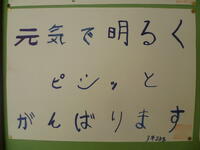 元気で明るく
ピシッと
がんばります